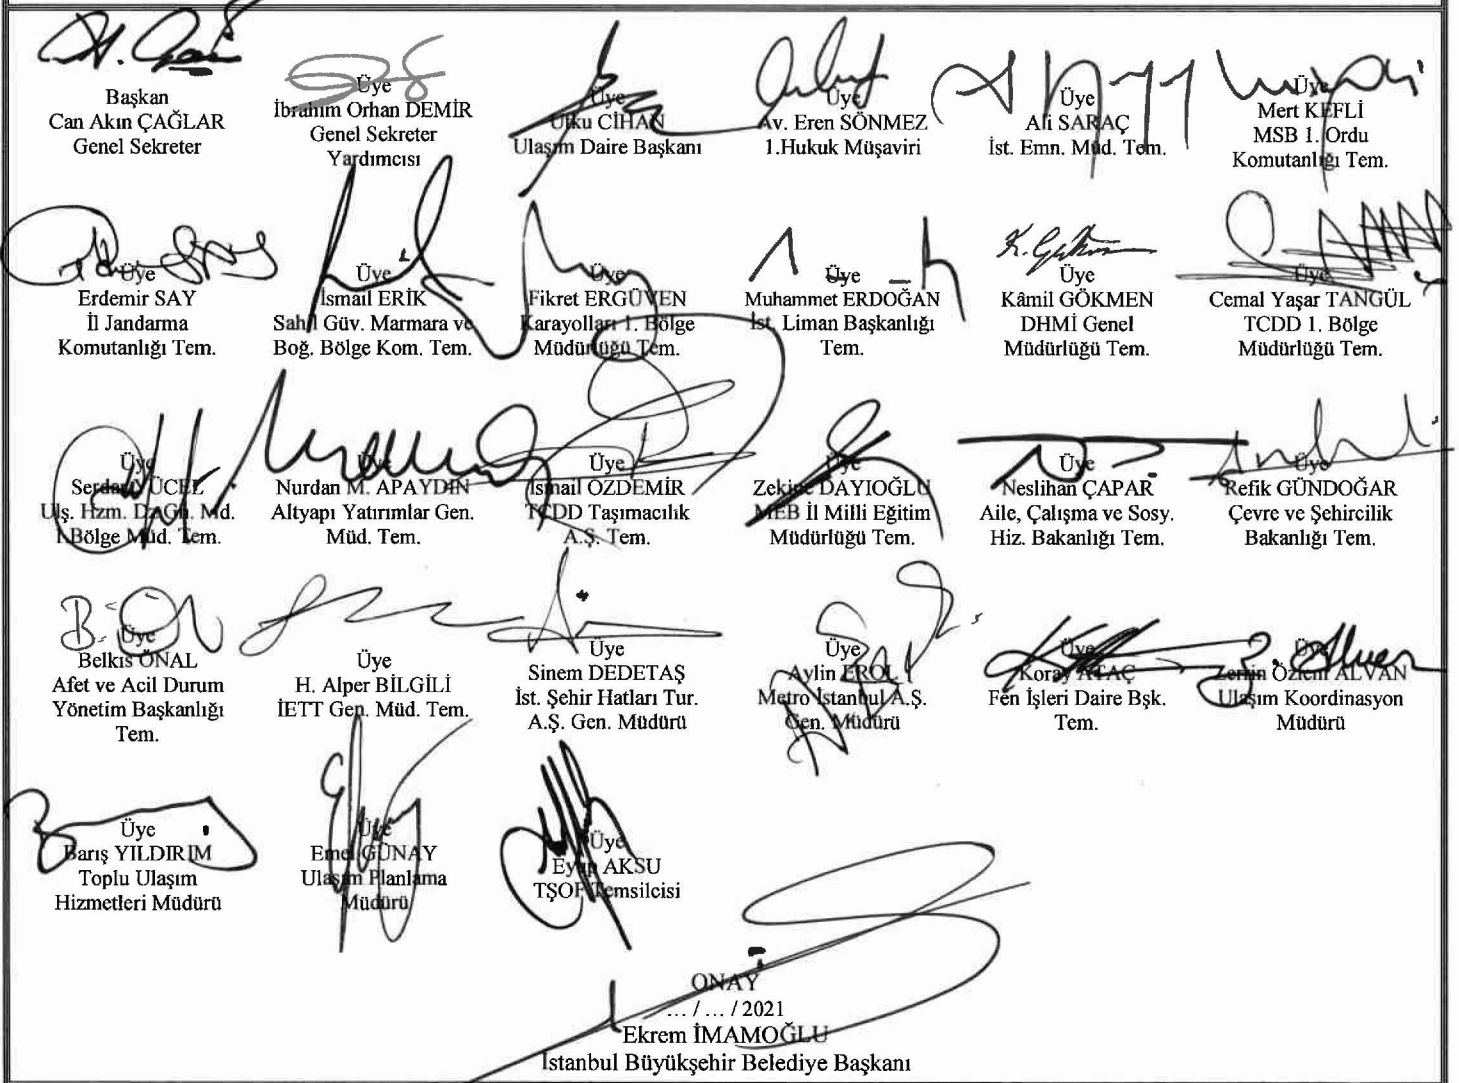 Başkan
Can Akın ÇAĞLAR
Genel Sekreter
Üye
İbrahim Orhan DEMİR
Genel Sekreter
Yardımcısı
Üye
Utku CİHAN
Ulaşım Daire Başkanı
Üye
Av. Eren SÖNMEZ
1.Hukuk Müşaviri
Üye
Ali SARAÇ
İst. Emn. Müd. Tem.
Üye
Mert KEFLİ
MSB 1. Ordu
Komutanlığı Tem.
Üye
Erdemir SAY
İl Jandarma
Komutanlığı Tem.
Üye
İsmail ERİK
Sahil Güv. Marmara ve
Boğ. Bölge Kom. Tem.
Üye
Fikret ERGÜVEN
Karayolları 1. Bölge
Müdürlüğü Tem.
Üye
Muhammet ERDOĞAN
İst. Liman Başkanlığı
Tem.
Üye
Kâmil GÖKMEN
DHMİ Genel
Müdürlüğü Tem.
Üye
Cemal Yaşar TANGÜL
TCDD 1. Bölge
Müdürlüğü Tem.
Üye
Serdar YÜCEL
Ulş. Hzm. Dz. Gn. Md.
1.Bölge Müd. Tem.
Üye
Nurdan M. APAYDIN
Altyapı Yatırımlar Gen.
Müd. Tem.
Üye
İsmail ÖZDEMİR
TCDD Taşımacılık
A.Ş. Tem.
Üye
Zekiye DAYIOĞLU
MEB İl Milli Eğitim
Müdürlüğü Tem.
Üye
Neslihan ÇAPAR
Aile, Çalışma ve Sosy.
Hiz. Bakanlığı Tem.
Üye
Refik GÜNDOĞAR
Çevre ve Şehircilik
Bakanlığı Tem.
Üye
Belkıs ÖNAL
Afet ve Acil Durum
Yönetim Başkanlığı
Tem.
Üye
H. Alper BİLGİLİ
İETT Gen. Müd. Tem.
Üye
Sinem DEDETAŞ
İst. Şehir Hatları Tur.
A.Ş. Gen. Müdürü
Üye
Aylin EROL
Metro İstanbul A.Ş.
Gen. Müdürü
Üye
Koray ATAÇ
Fen İşleri Daire Bşk.
Tem.
Üye
Zerrin Özlem ALVAN
Ulaşım Koordinasyon
Müdürü
Üye
Barış YILDIRIM
Toplu Ulaşım
Hizmetleri Müdürü
Üye
Emel GÜNAY
Ulaşım Planlama
Müdürü
Üye
Eyüp AKSU
TŞOF Temsilcisi
ONAY
... / ... / 2021
Ekrem İMAMOĞLU
İstanbul Büyükşehir Belediye Başkanı